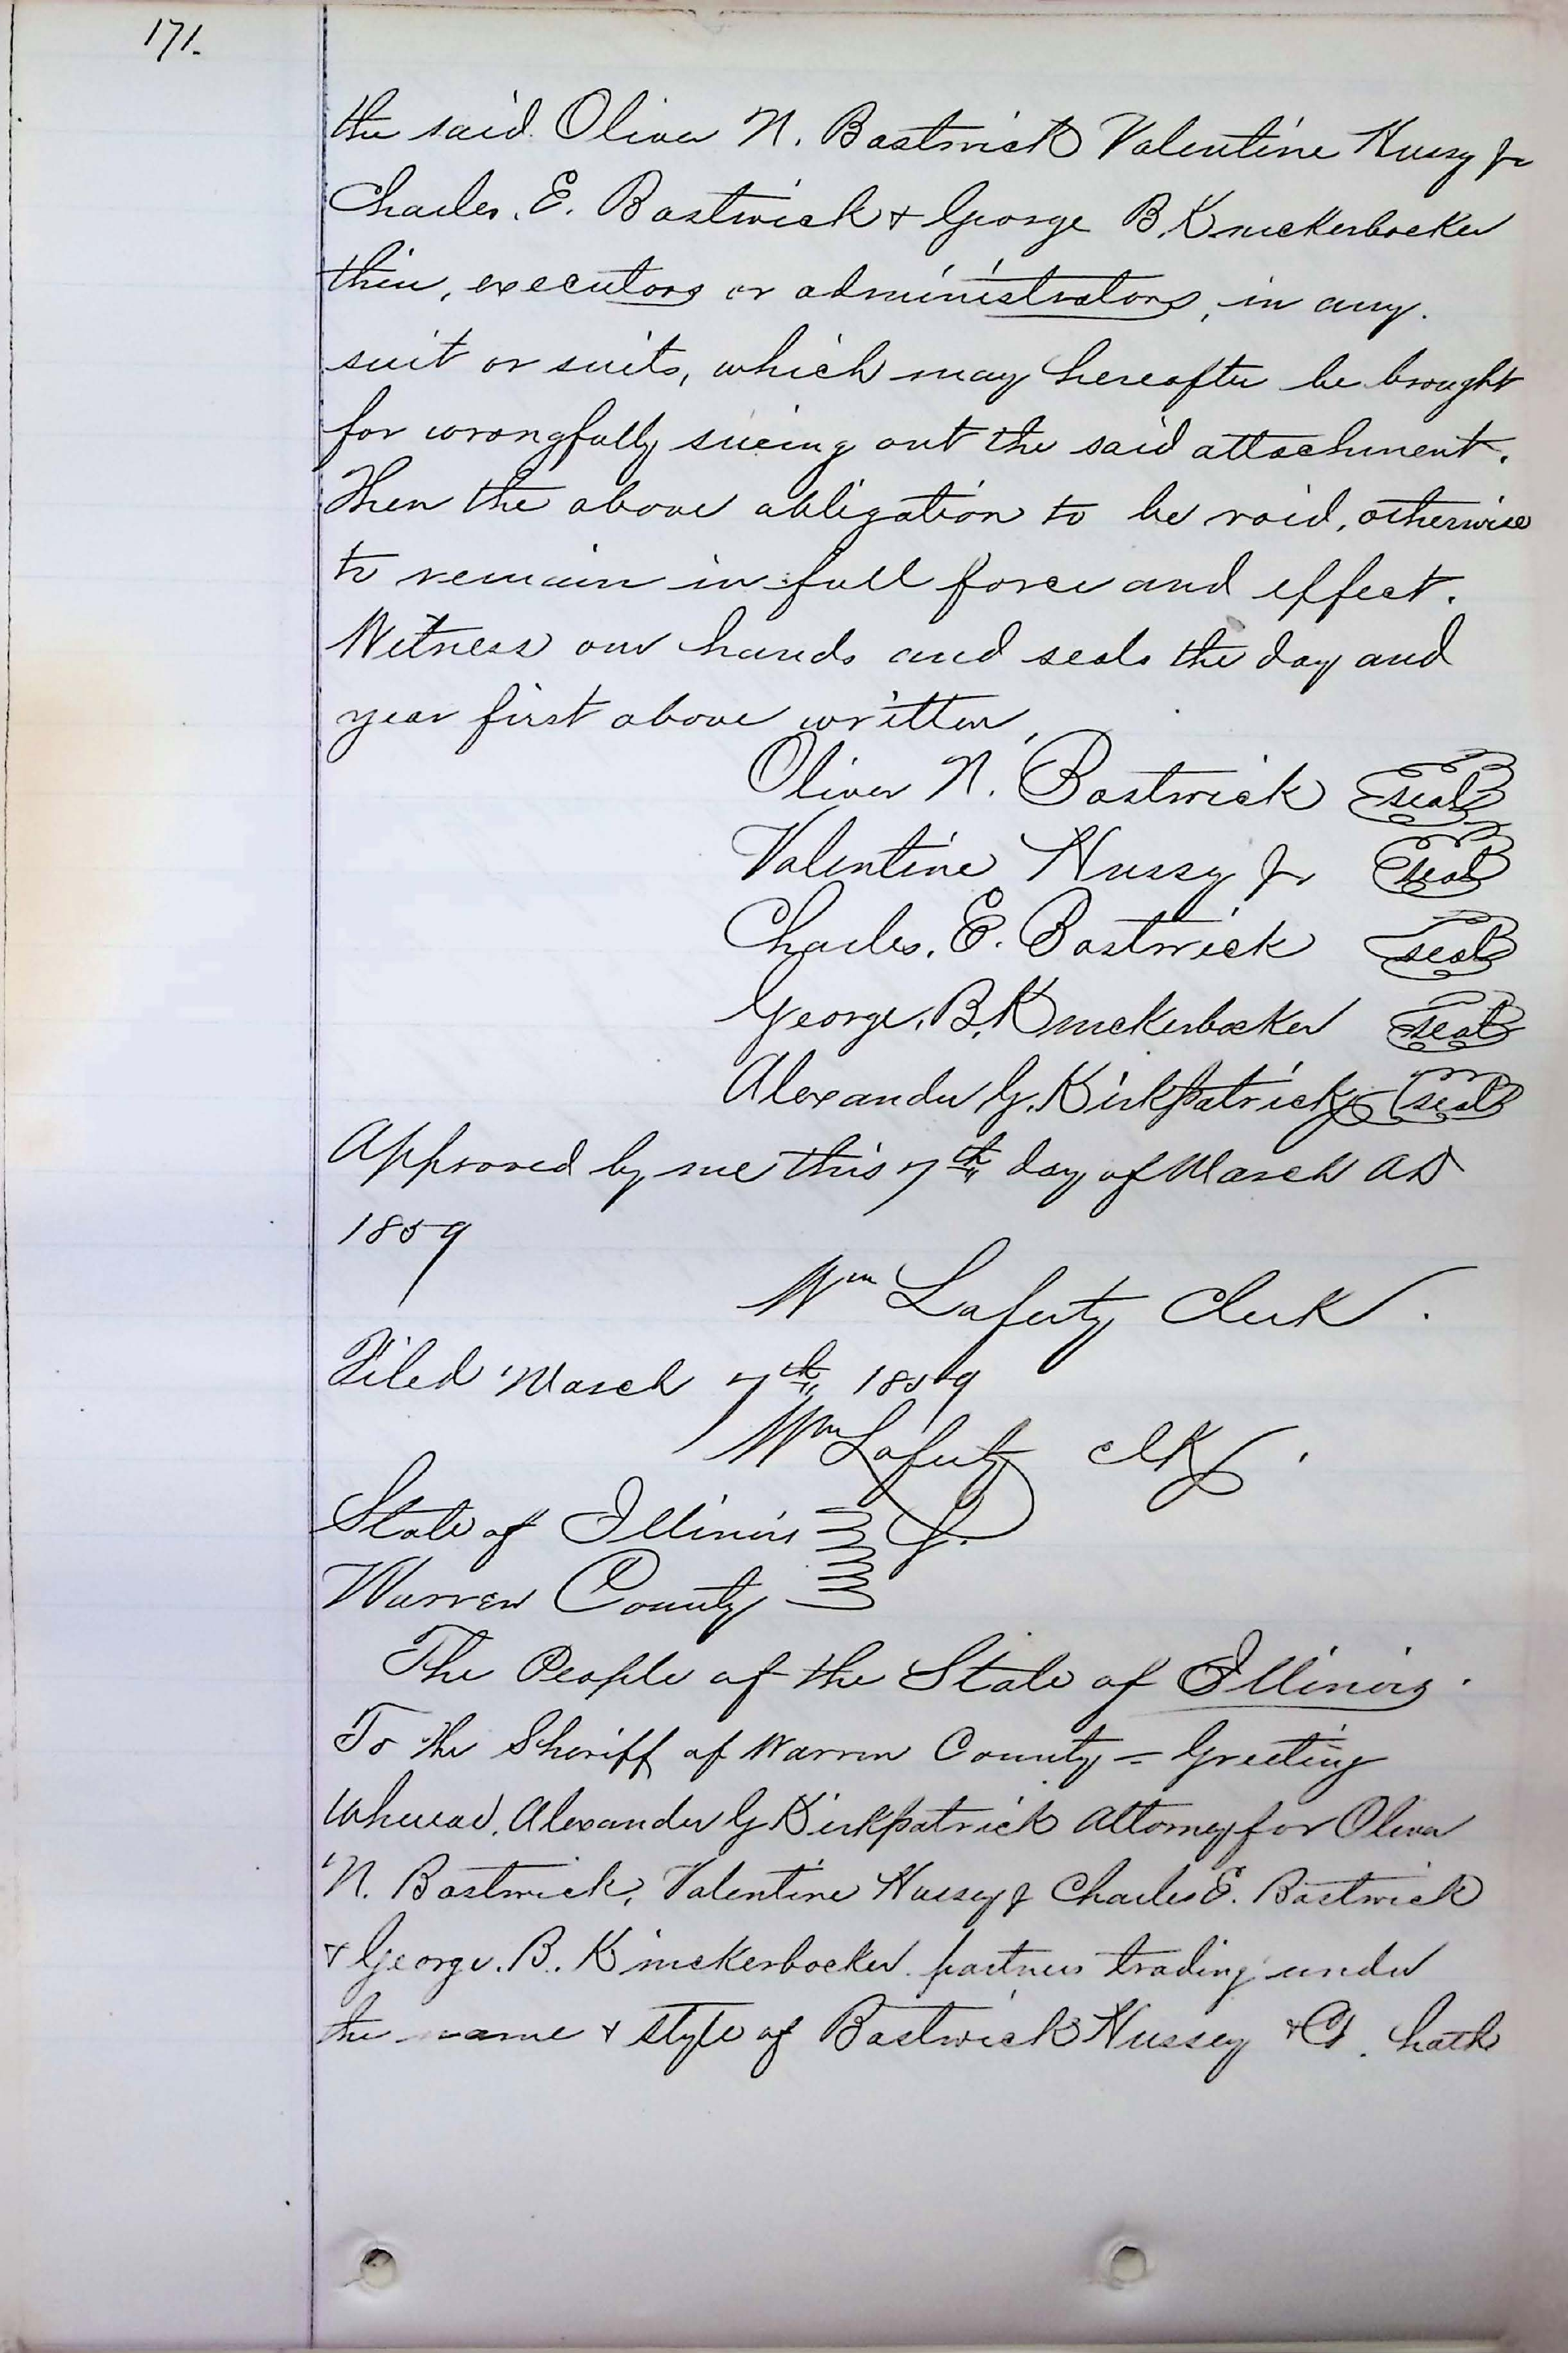 171.
the said Oliver N. Bostwick Valentine Hussy Jr
Charles. E. Bostwick & George B. Knickerbocker
their, executors or administrators, in any.
suit or suits, which may hereafter be brought
for wrongfully sueing out the said attachment.
Then the above obligation to be void, otherwise
to remain in full force and effect.
Witness our hands and seals the day and
year first above written,
Oliver N. Bostwick seal
Valentine Hussy Jr seal
Charles. E. Bostwick seal
George. B. Knickerbocker seal
Alexander G. Kirkpatrick seal
Approved by me this 7th day of March AD
1859
Wm Laferty Clerk.
Filed March 7th 1859
Wm Laferty clk.
State of Illinois
Warren County
The People of the State of Illinois.
To the Sheriff of Warren County = Greeting
Whereas, Alexander G Kirkpatrick Attorney for Oliver
N. Bostwick, Valentine Hussey Jr Charles E. Bostwick
& George. B. Knickerbocker. partners trading under
the name & style of Bostwick Hussey & Co. hath